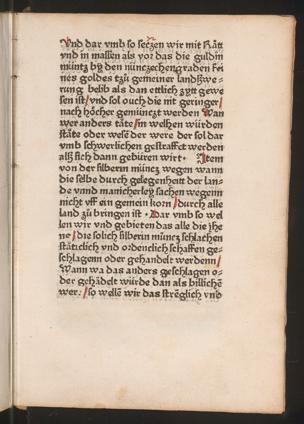 Vnd dar vmb so seczen wir mit Rått
vnd in massen als vor das die guldin
müntz by den nünczechen graden fei
nes goldes tzů gemeiner landßwe-
rung belib als dan ettlich zytt gewe
sen ist/ vnd sol ouch die nit geringer/
nach höcher gemünczt werden Wan
wer anders täte/ in welhen würden
ståte oder wesē der were der sol dar
vmb schwerlichen gestraffet werden
alß sich dann gebüren wirt · Item
von der silberin müncz wegen wann
die selbe durch gelegenheitt der lan-
de vnnd manicherley sachen wegenn
nicht vff ein gemein korn / durch alle
land zů bringen ist · Dar vmb so wel
len wir vnd gebieten das alle die ihe
ne / die solich silberin müncz schlachen
stätticlich vnd ordenlich schaffen ge-
schlagenn oder gehandelt werdenn/
Wann wa das anders geschlagen o-
der gehādelt würde dan als billichē
wer · / so wellē wir das strēglich vnd